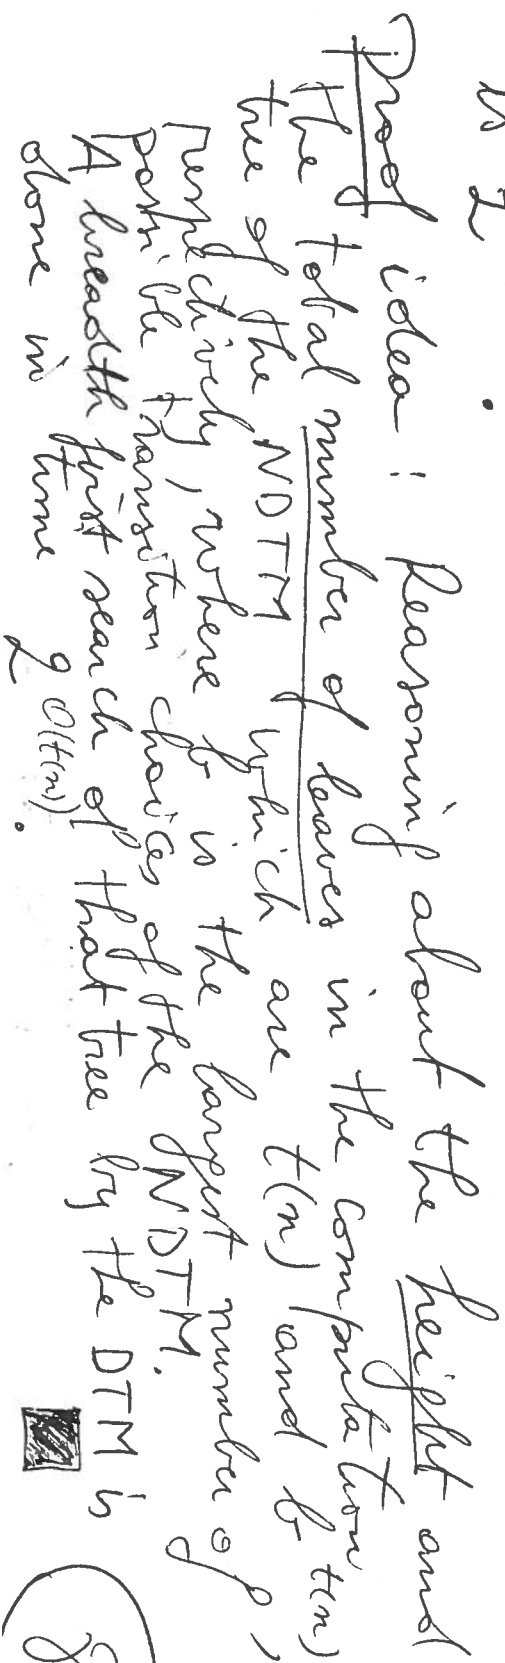 is 2 .
Proof idea : Reasoning about the height and
the total number of leaves in the computation
tree of the NDTM which are t(n) and b^t(n),
respectively, where b is the largest number of
possible transition choices of the NDTM.
A breadth first search of that tree by the DTM is
done in time 2^O(t(n)).
8